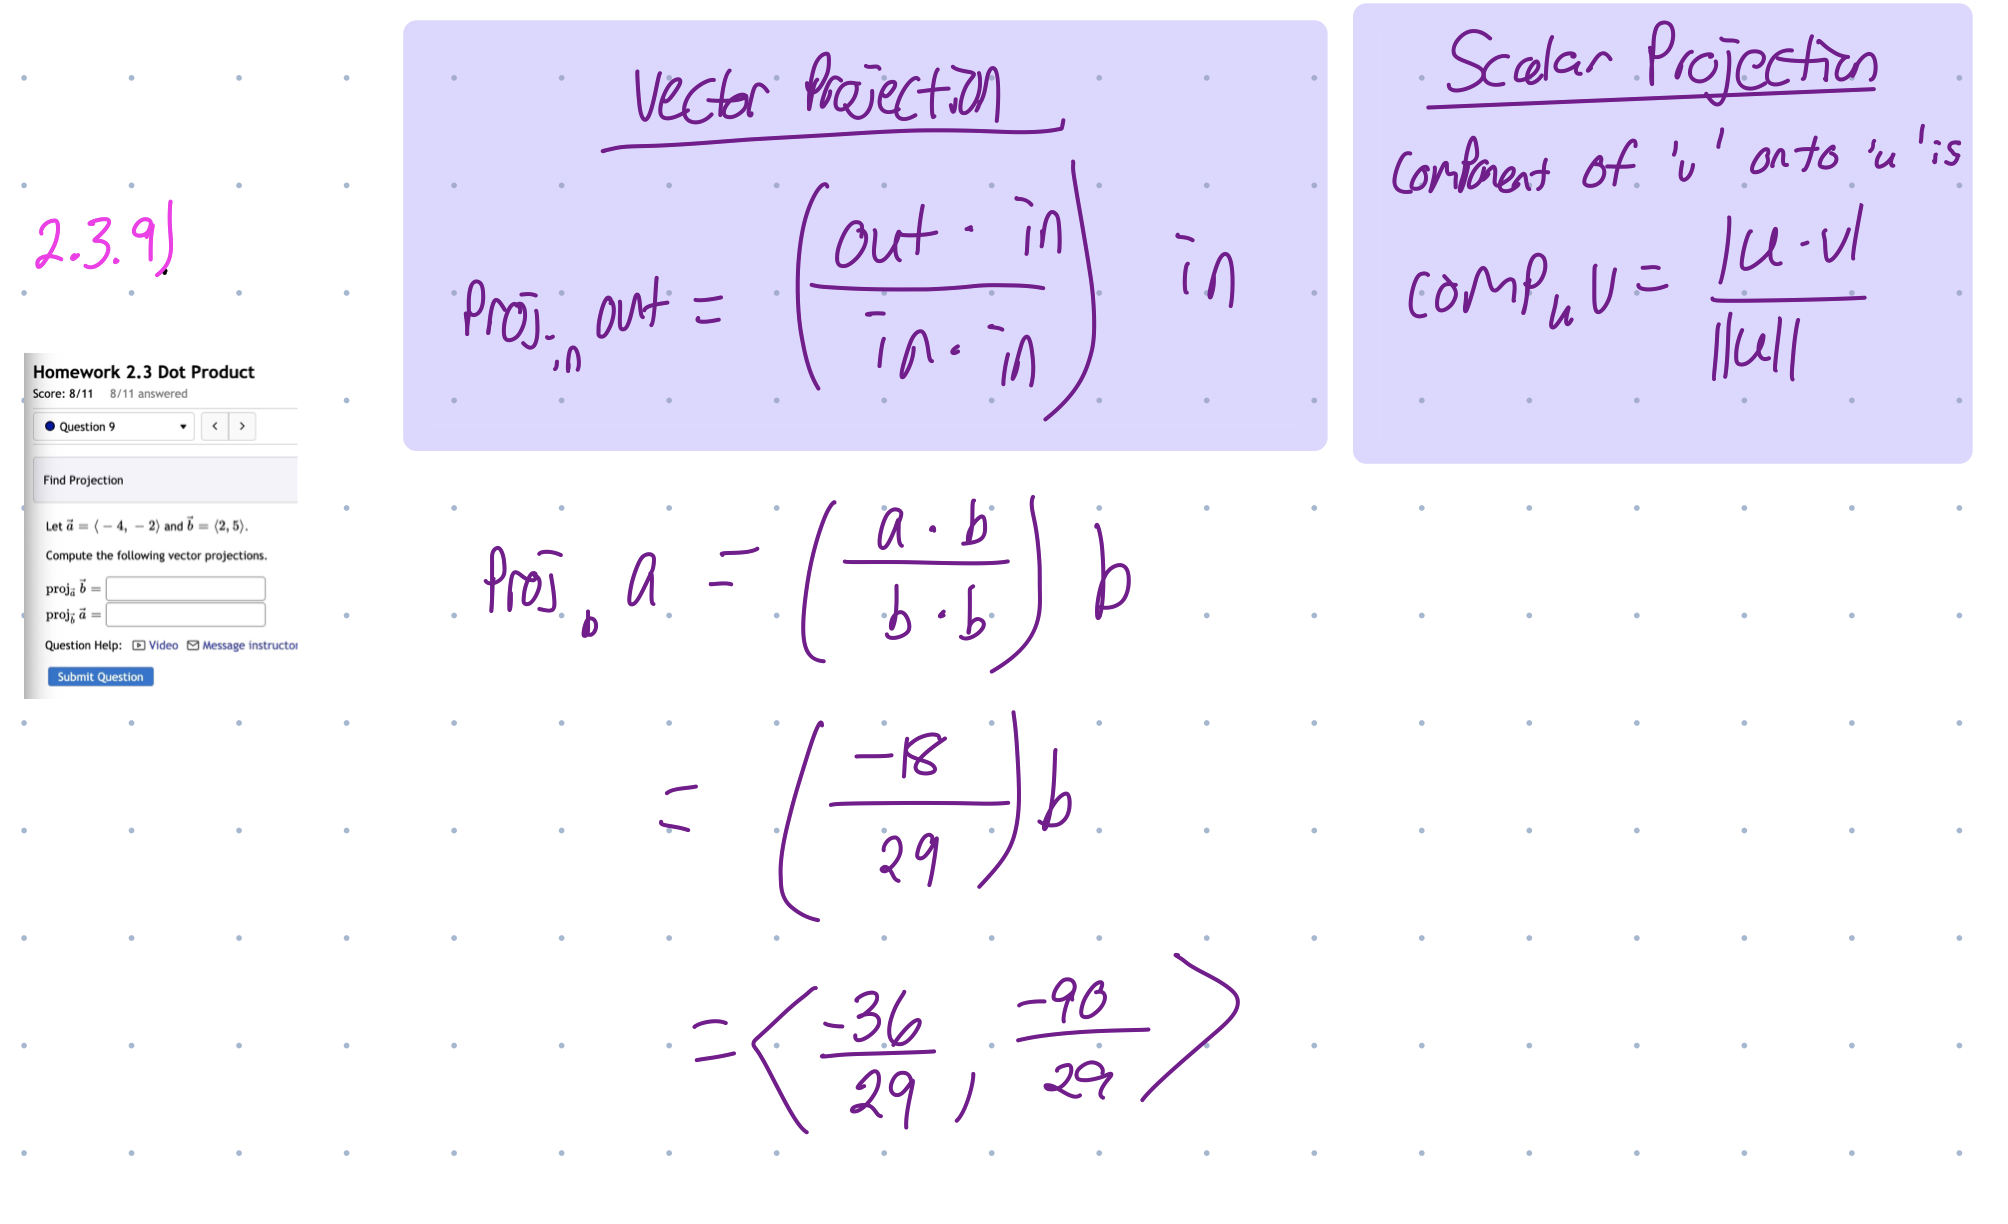 2.3.9)
Homework 2.3 Dot Product
Score: 8/11 8/11 answered
Question 9
< >
Find Projection
Let a⃗ = ⟨ − 4, − 2⟩ and b⃗ = ⟨2, 5⟩.
Compute the following vector projections.
proj_a⃗ b⃗ =
proj_b⃗ a⃗ =
Question Help: Video Message instructor
Submit Question
Vector Projection
Proj_in out = (out · in / in · in) in
Scalar Projection
component of 'v' onto 'u' is
comp_u v = |u · v| / ||u||
Proj_b a = (a · b / b · b) b
= (-18 / 29) b
= ⟨-36/29, -90/29⟩